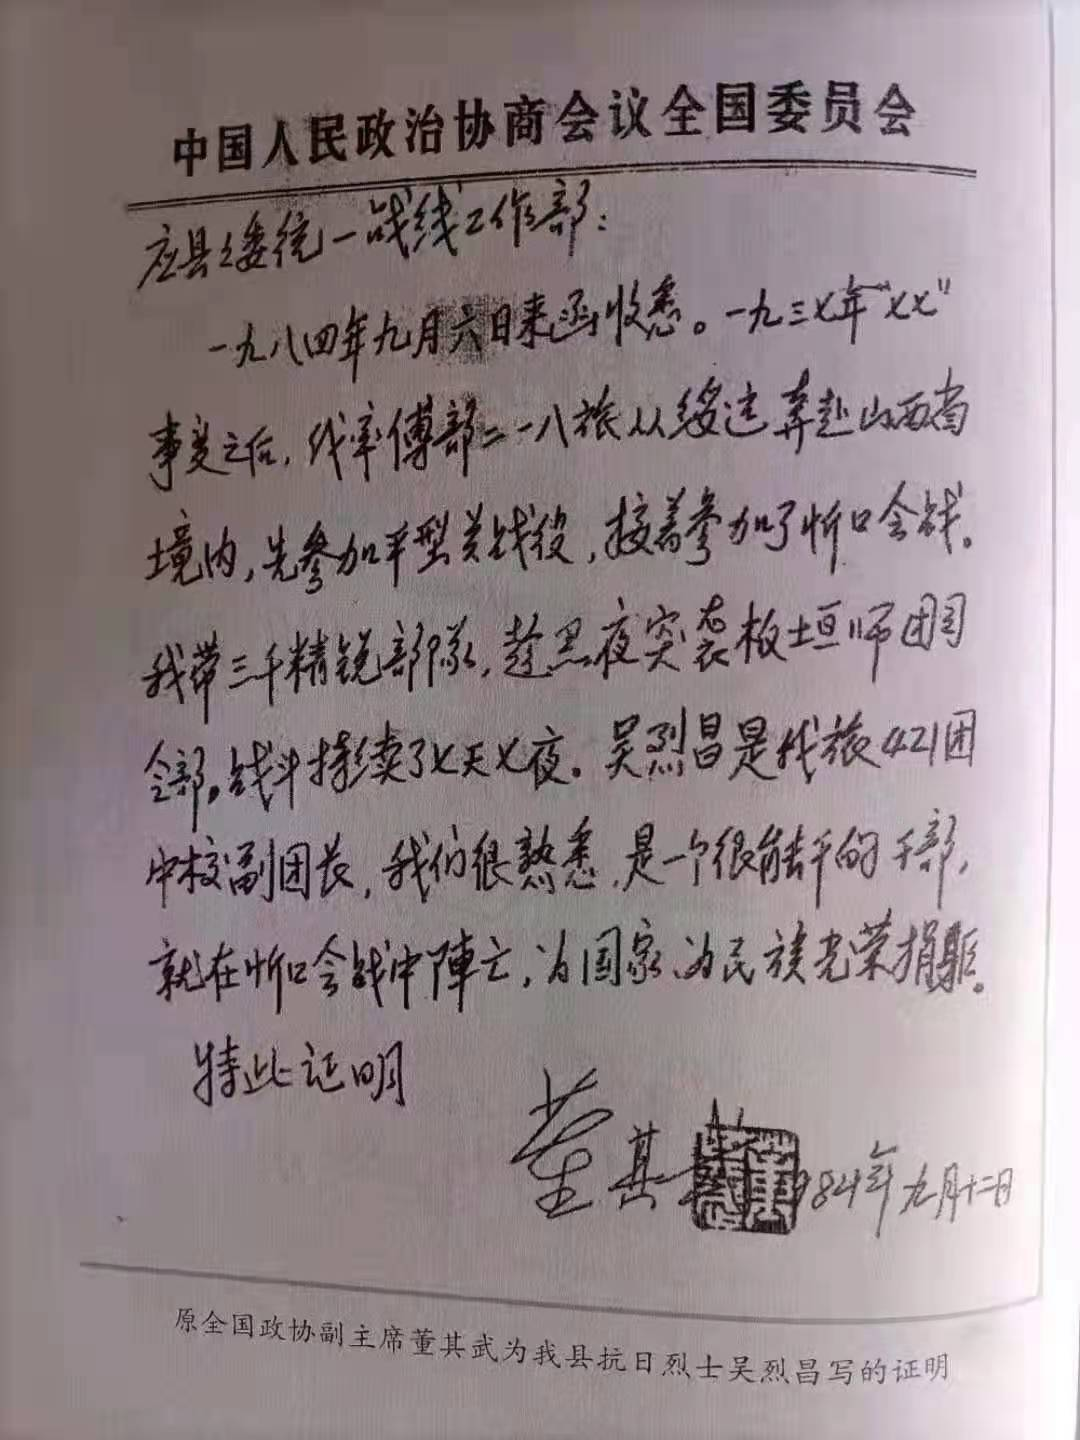 中国人民政治协商会议全国委员会
应县县委统一战线工作部：
一九八四年九月六日来函收悉。一九三七年“七七”
事变之后，我率傅部二一八旅从绥远奔赴山西省
境内，先参加平型关战役，接着参加了忻口会战。
我带三千精锐部隊，趁黑夜突袭板垣师团司
令部。战斗持续了七天七夜。吴烈昌是我旅421团
中校副团长，我们很熟悉，是一个很能干的干部，
就在忻口会战中陣亡，为国家为民族光荣捐躯。
特此证明
董其武 1984年九月十二日
原全国政协副主席董其武为我县抗日烈士吴烈昌写的证明